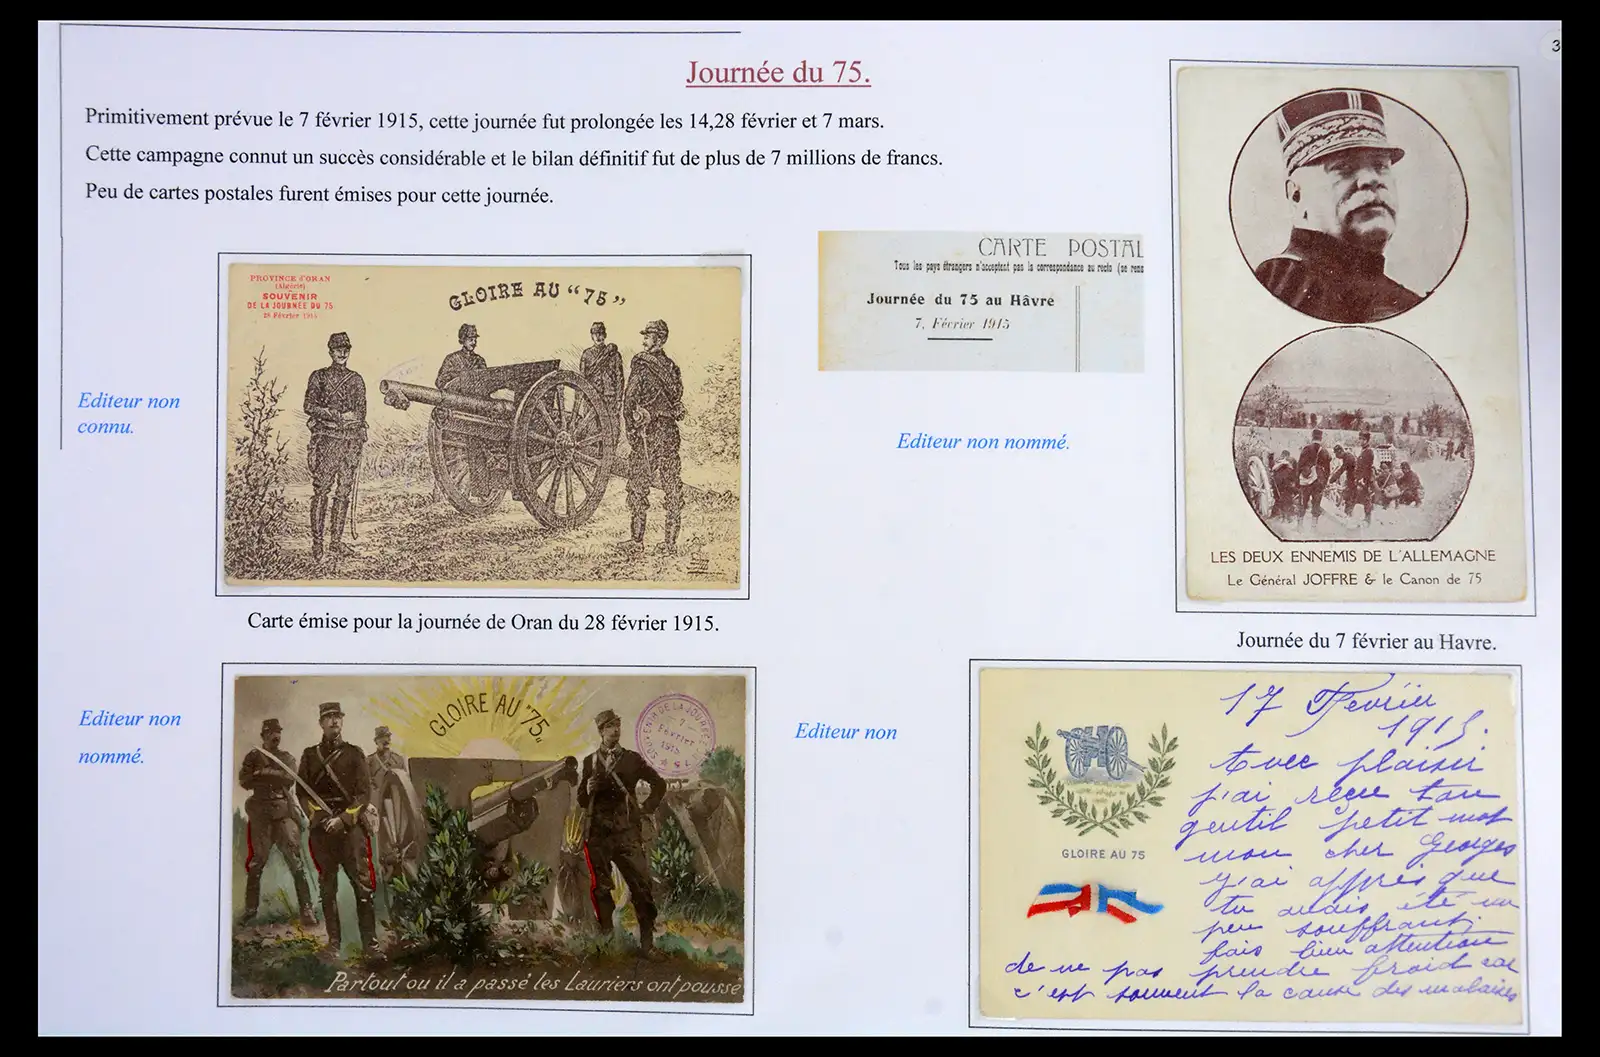 3
Journée du 75.
Primitivement prévue le 7 février 1915, cette journée fut prolongée les 14,28 février et 7 mars.
Cette campagne connut un succès considérable et le bilan définitif fut de plus de 7 millions de francs.
Peu de cartes postales furent émises pour cette journée.
PROVINCE d'ORAN
(Algérie)
SOUVENIR
DE LA JOURNÉE DU 75
28 Février 1915
GLOIRE AU "75"
Editeur non
connu.
Carte émise pour la journée de Oran du 28 février 1915.
CARTE POSTAL
Tous les pays étrangers n'acceptent pas la correspondance au recto (se rens
Journée du 75 au Hâvre
7, Février 1915
Editeur non nommé.
LES DEUX ENNEMIS DE L'ALLEMAGNE
Le Général JOFFRE & le Canon de 75
Journée du 7 février au Havre.
Editeur non
nommé.
GLOIRE AU "75"
SOUVENIR DE LA JOURNÉE
7
Février
1915
75
Partout ou il a passé les Lauriers ont poussé
Editeur non
GLOIRE AU 75
17 Février
1915.
Avec plaisir
j'ai reçu ton
gentil petit mot
mon cher Georges
j'ai appris que
tu avais été un
peu souffrant,
fais bien attention
de ne pas prendre froid car
c'est souvent la cause des malaises